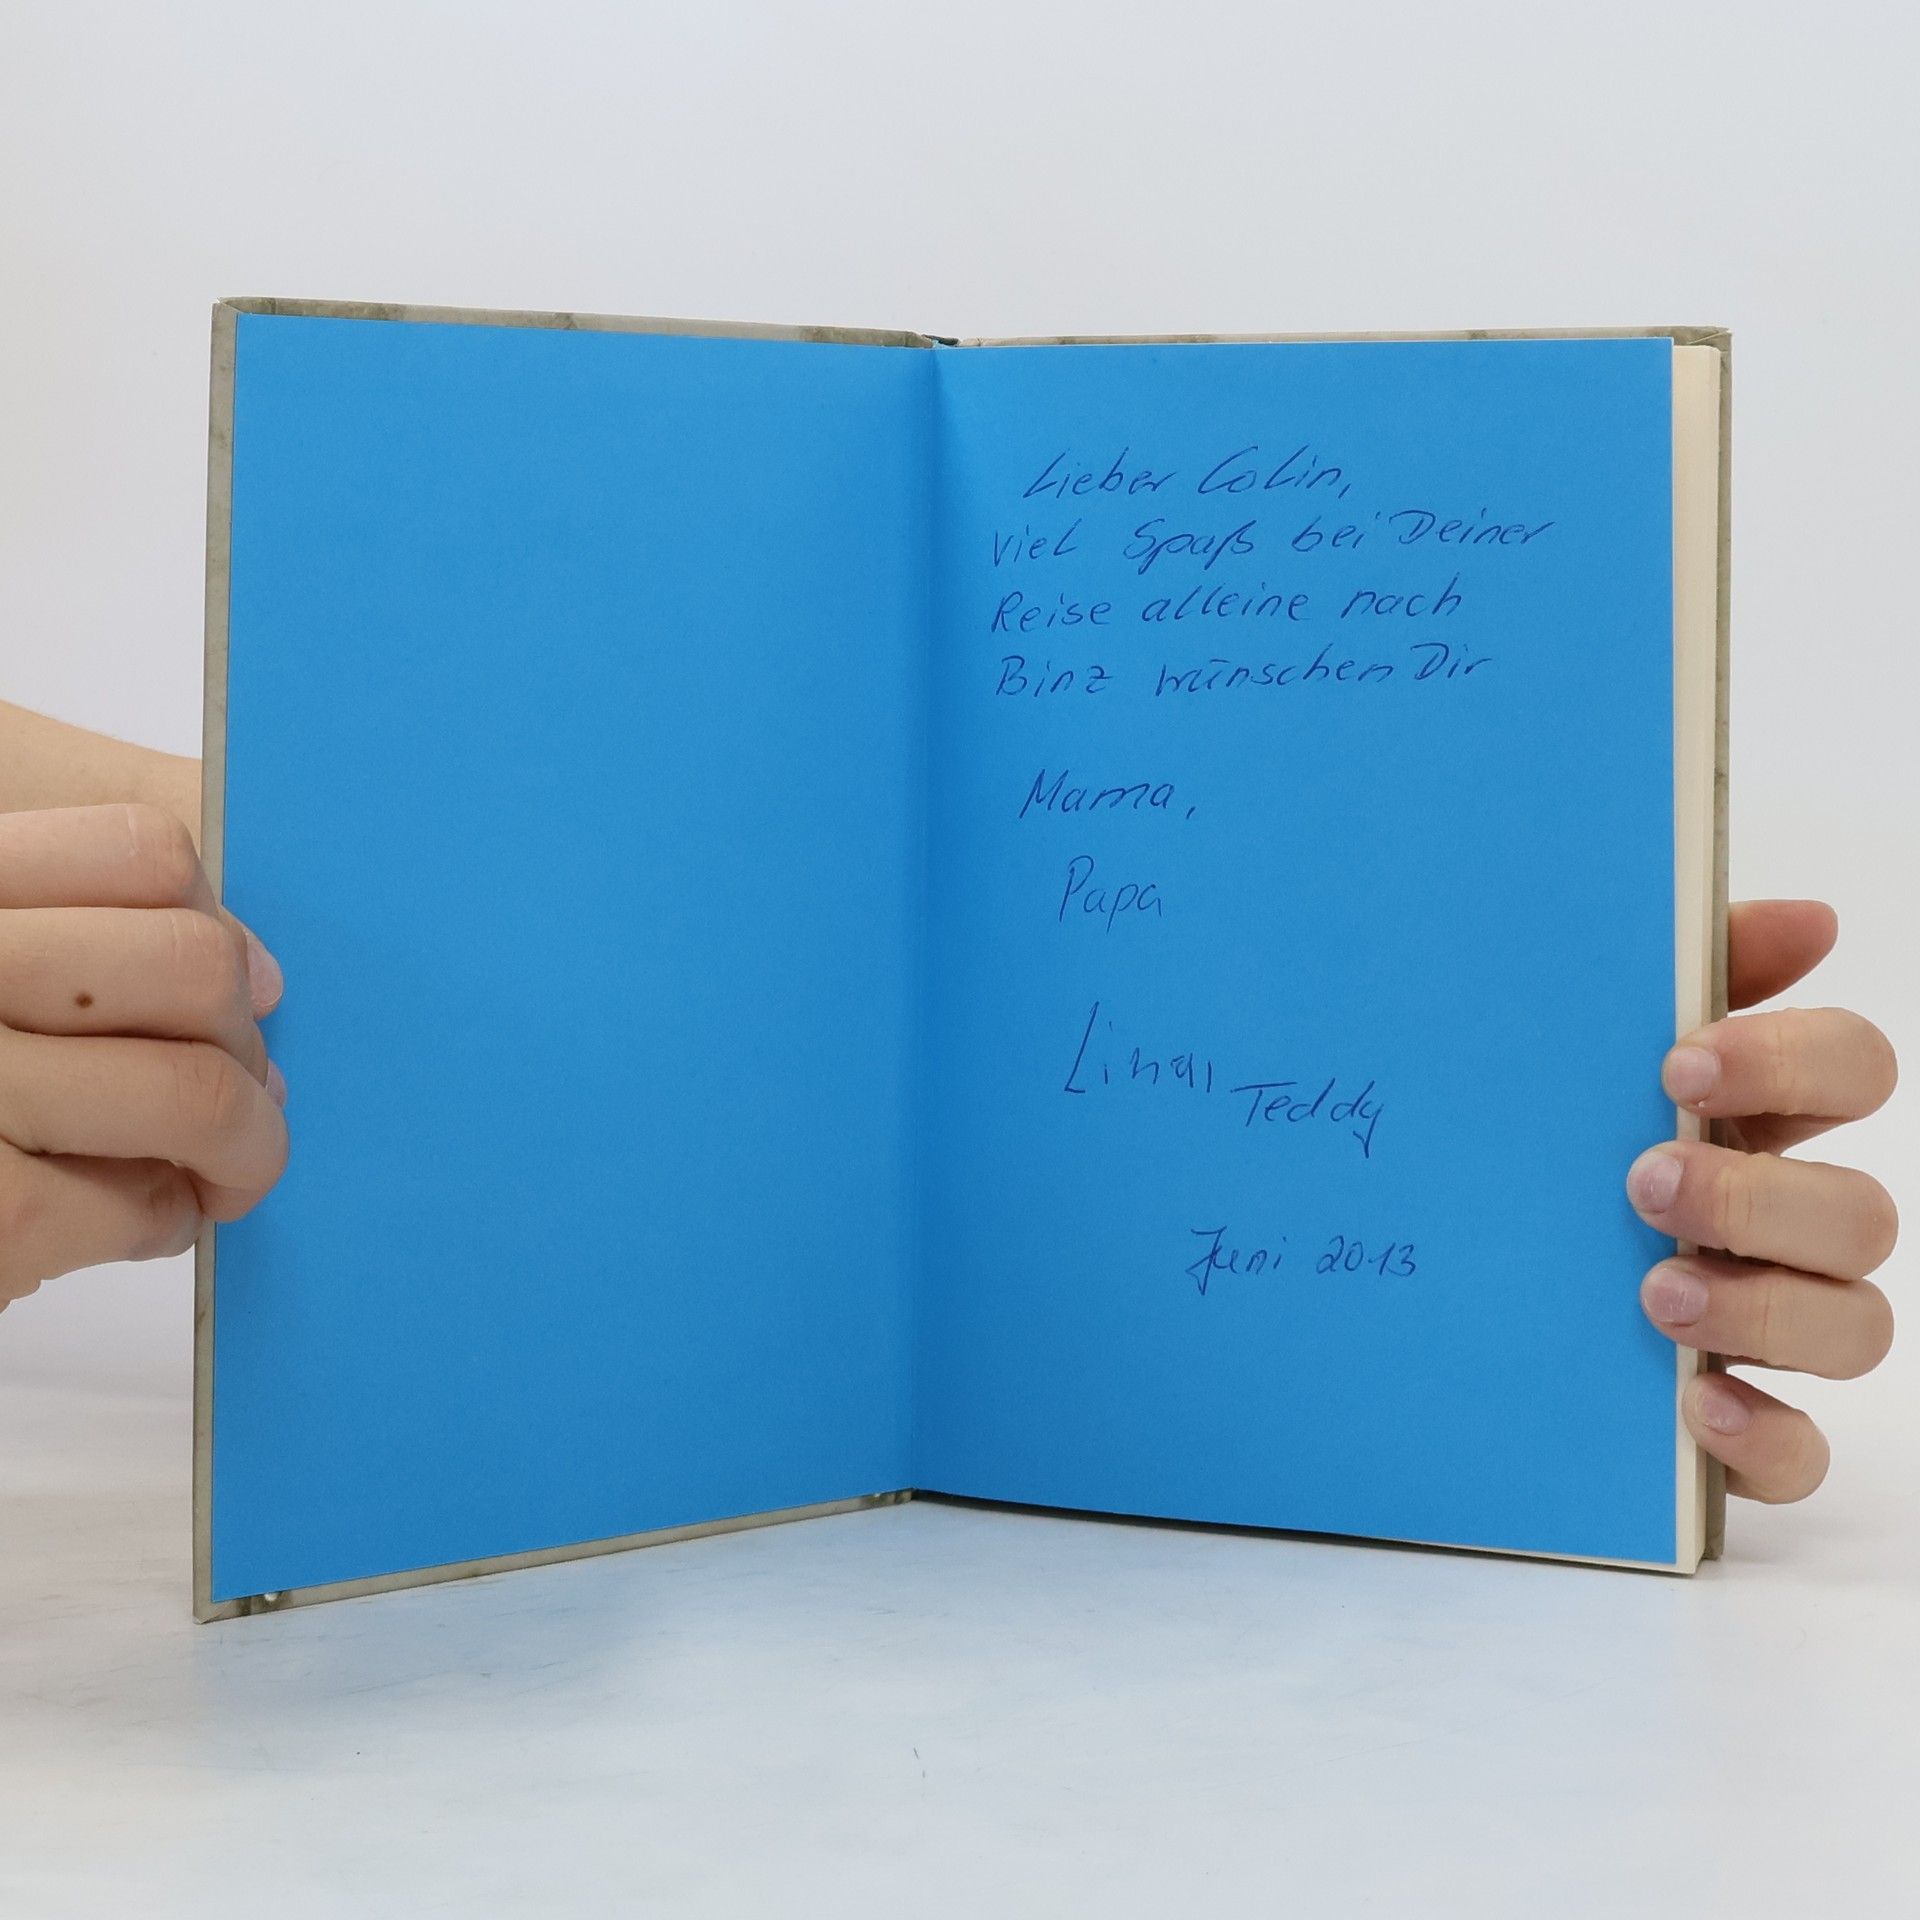 Lieber Colin,
viel Spaß bei Deiner
Reise alleine nach
Binz wünschen Dir
Mama,
Papa
Lina,
Teddy
Juni 2013